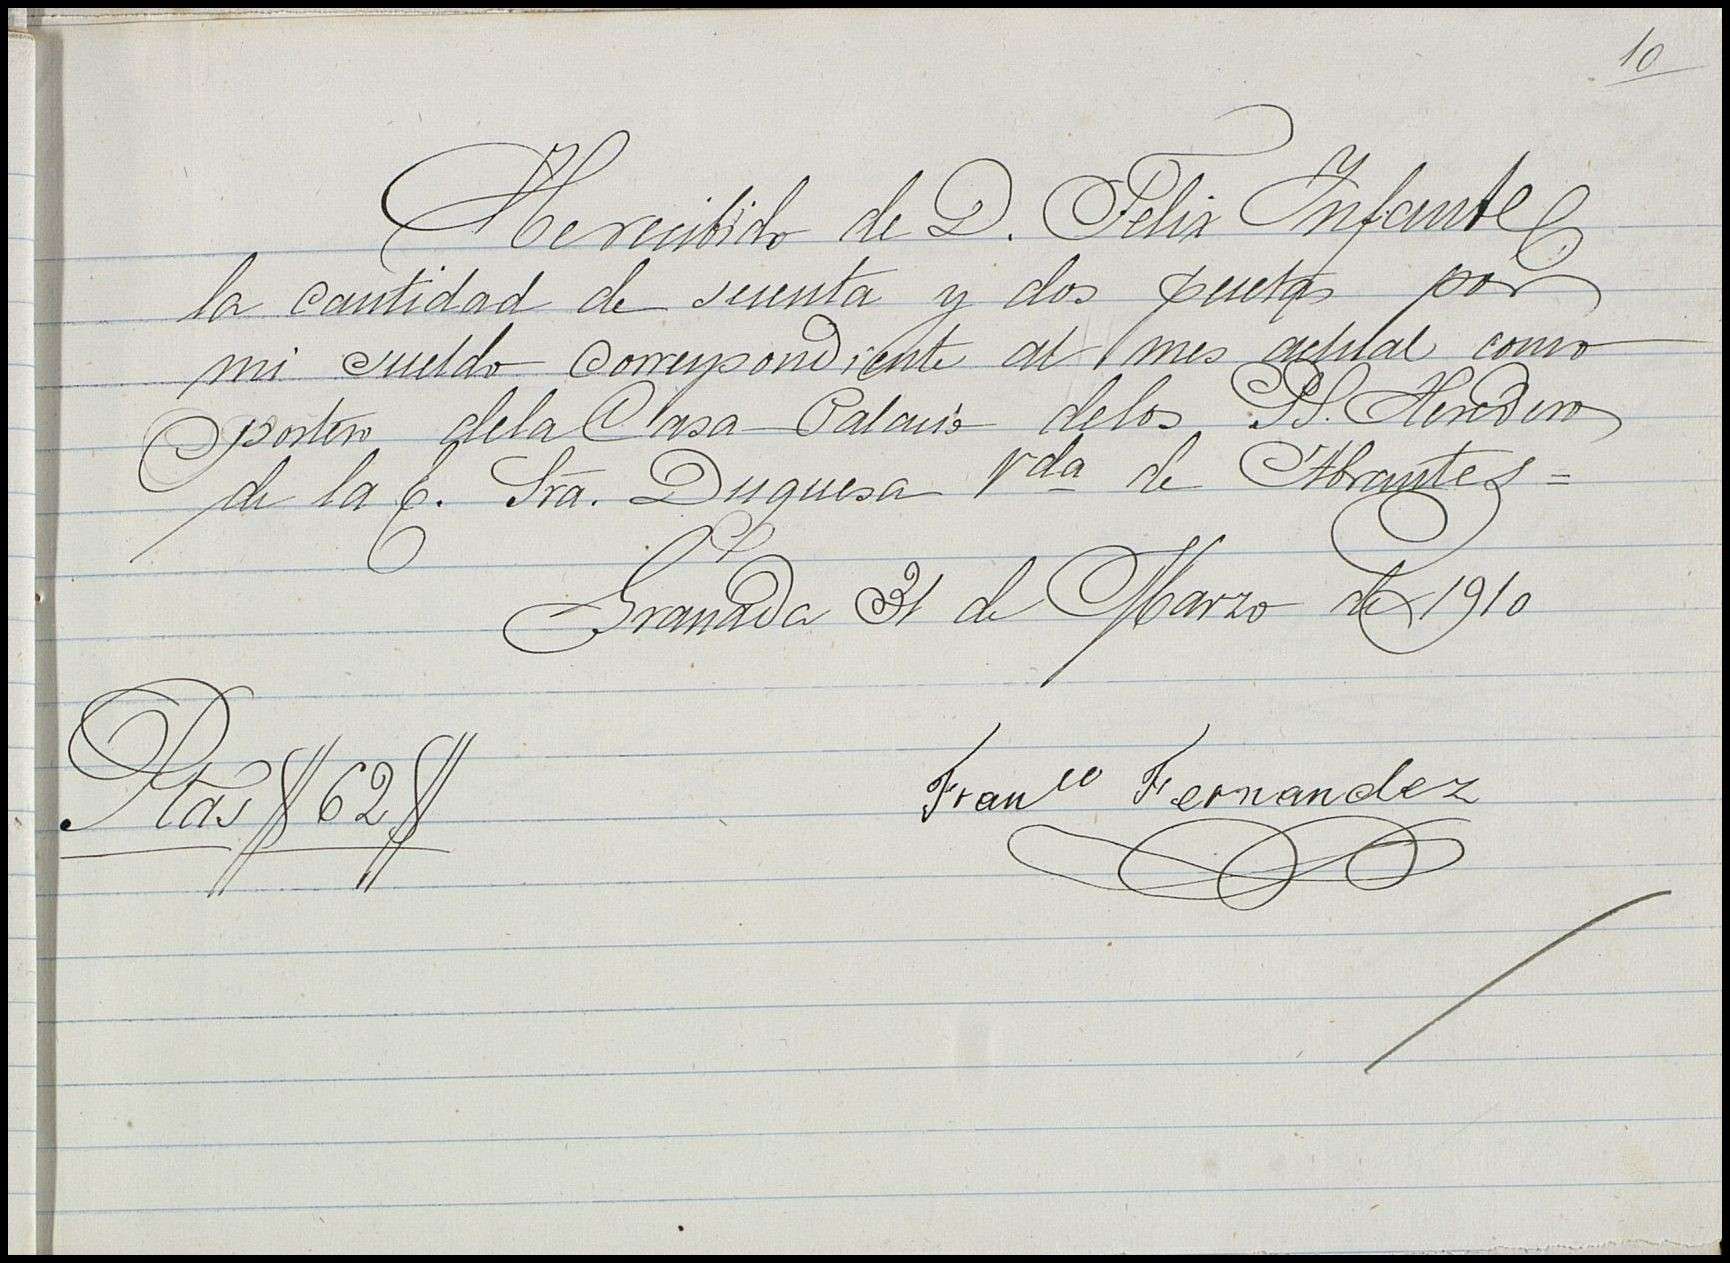 10
He recibido de D. Felix Infante
la cantidad de sesenta y dos pesetas por
mi sueldo correspondiente al mes actual como
portero de la Casa Palacio de los SS. Herederos
de la E. Sra. Duquesa Vda de Abrantes =
Granada 31 de Marzo de 1910
Ptas 62
Franco Fernandez